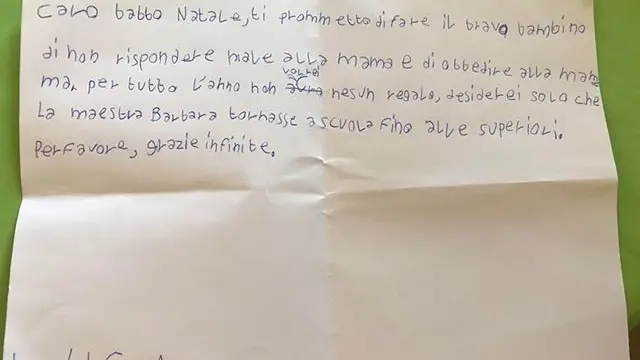 Caro babbo Natale, ti prommetto di fare il bravo bambino
di non rispondere male alla mama e di obbedire alla mam
ma, per tutto l'anno non vorrei nesun regalo, desiderei solo che
la maestra Barbara tornasse a scuola fino alle superiori.
Perfavore, grazie infinite.